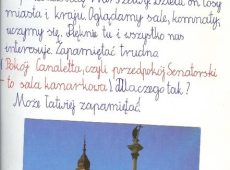 miasta i kraju. Oglądamy sale, komnaty,
uczymy się. Pięknie tu i wszystko nas
interesuje. Zapamiętać trudno
Pokój Canaletta, czyli przedpokój Senatorski
- to sala kanar-kowa! Dlaczego tak?
Może łatwiej zapamiętać